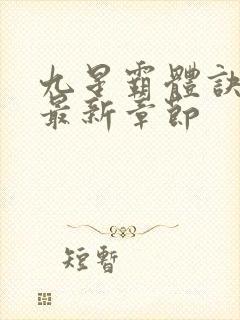 九星霸體訣
最新章節
短暫